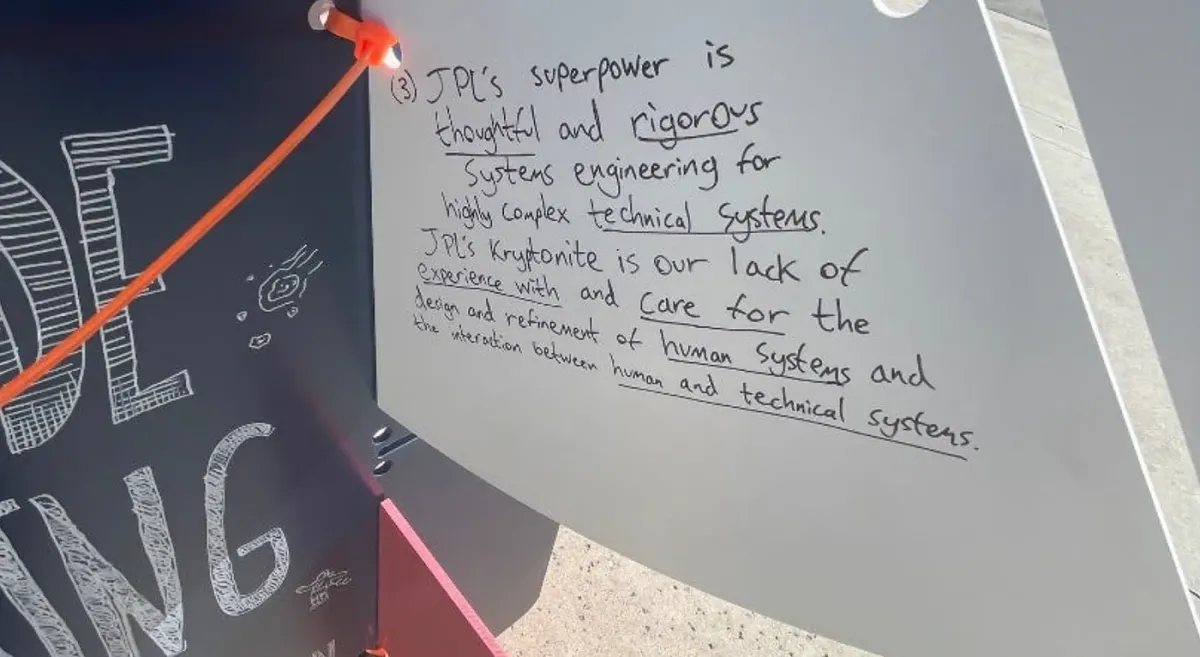 DE
ING
(3) JPL's superpower is
thoughtful and rigorous
Systems engineering for
highly complex technical systems.
JPL's Kryptonite is our lack of
experience with and care for the
design and refinement of human systems and
the interaction between human and technical systems.